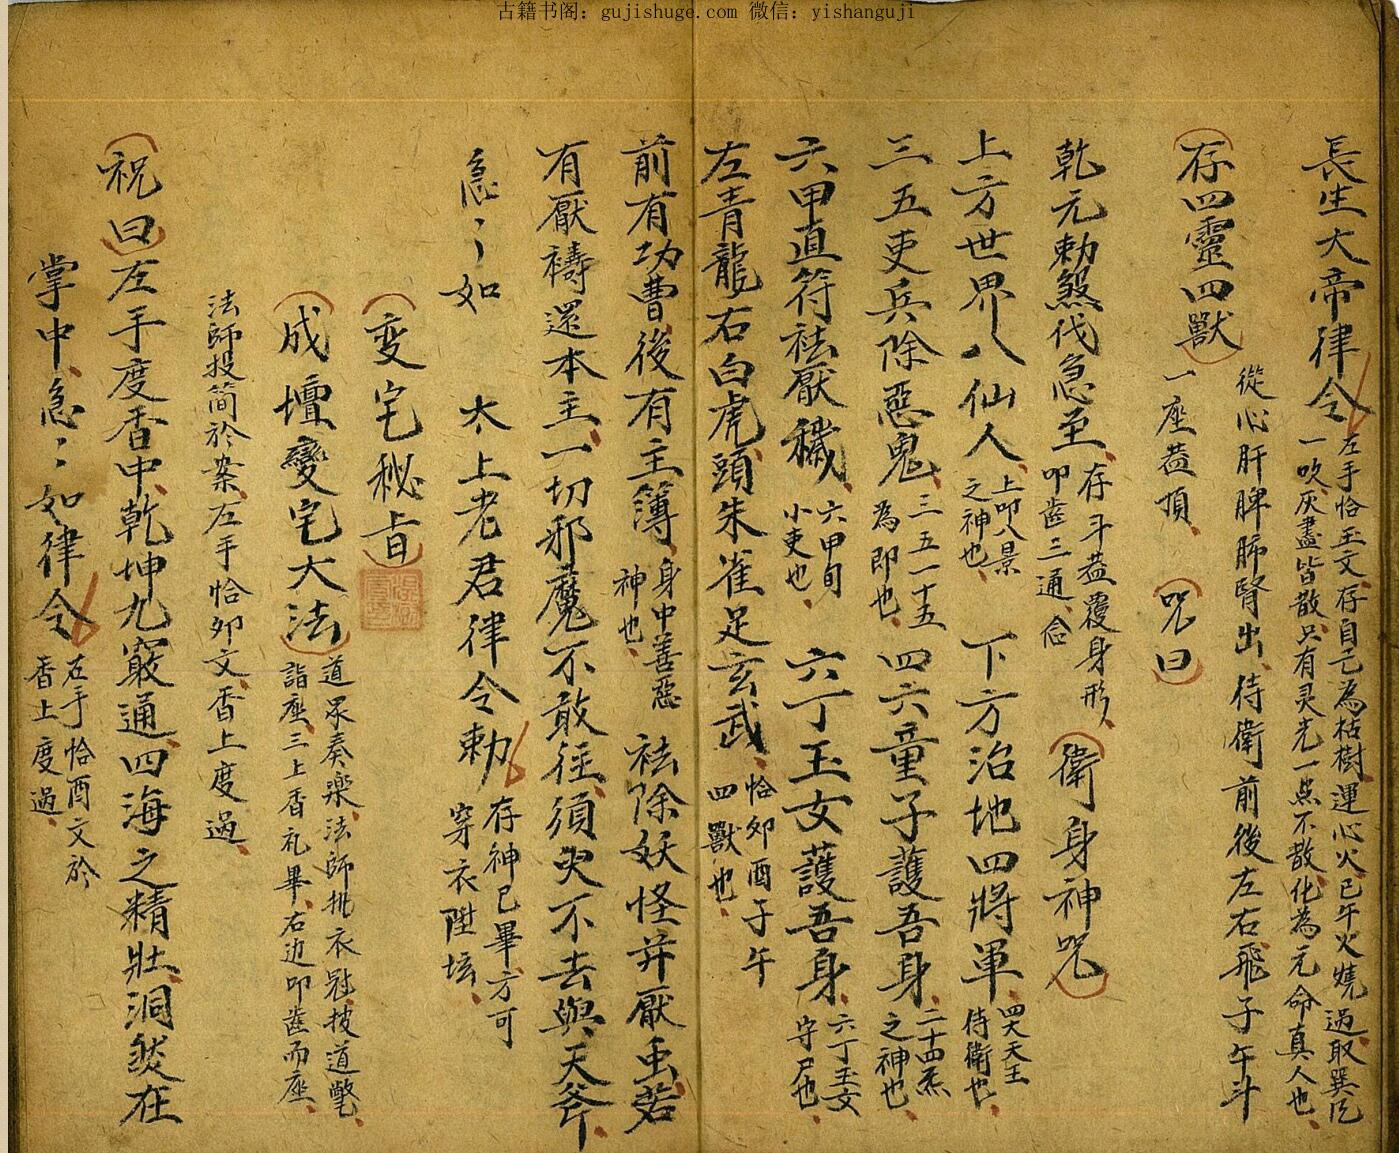 古籍书阁：gujishuge.com 微信：yishanguji
長生大帝律令 左手恰玉文存自己為枯樹運心火巳午火燒過取巽炁
一吹灰盡皆散只有灵光一点不散化為元命真人也
存四靈四獸 從心肝脾肺腎出侍衛前後左右飛子午斗
一座蓋頂 咒曰
乾元勅煞伐急至 存斗蓋覆身形
叩齒三通 衛身神咒
上方世界八仙人 上叩八景
之神也 下方治地四將軍 四大天王
侍衛也
三五吏兵除惡鬼 三五一十五
為即也 四六童子護吾身 二十四炁
之神也
六甲直符祛厭穢 六甲旬
小吏也 六丁玉女護吾身 六丁玉女
守尸也
左青龍右白虎頭朱雀足玄武 恰夘酉子午
四獸也
前有功曹後有主簿 身中善惡
神也 祛除妖怪并厭虫若
有厭禱還本主一切邪魔不敢徃須臾不去與天斧
急〻如 太上老君律令勅 存神已畢方可
穿衣陞壇
变宅秘旨
成壇變宅大法 道眾奏樂法師批衣冠披道氅
詣座三上香礼畢右边叩齒而座
法師投简於案左手恰夘文香上度過
祝曰左手度香中乾坤九竅通四海之精壯洞然在
掌中急〻如律令 左手恰酉文於
香上度過